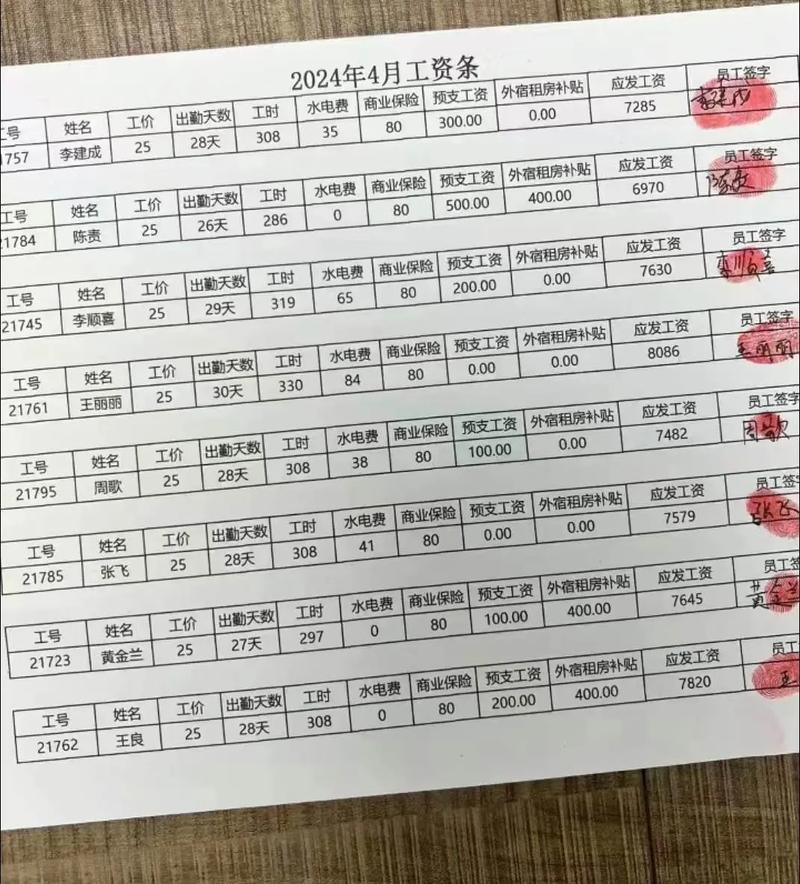 2024年4月工资条
工号 姓名 工价 出勤天数 工时 水电费 商业保险 预支工资 外宿租房补贴 应发工资 员工签字
1757 李建成 25 28天 308 35 80 300.00 0.00 7285 李建成
工号 姓名 工价 出勤天数 工时 水电费 商业保险 预支工资 外宿租房补贴 应发工资 员工签字
21784 陈责 25 26天 286 0 80 500.00 400.00 6970
工号 姓名 工价 出勤天数 工时 水电费 商业保险 预支工资 外宿租房补贴 应发工资 员工签字
21745 李顺喜 25 29天 319 65 80 200.00 0.00 7630 李顺喜
工号 姓名 工价 出勤天数 工时 水电费 商业保险 预支工资 外宿租房补贴 应发工资 员工签字
21761 王丽丽 25 30天 330 84 80 0.00 0.00 8086 王丽丽
工号 姓名 工价 出勤天数 工时 水电费 商业保险 预支工资 外宿租房补贴 应发工资 员工签字
21795 周歌 25 28天 308 38 80 100.00 0.00 7482 周歌
工号 姓名 工价 出勤天数 工时 水电费 商业保险 预支工资 外宿租房补贴 应发工资 员工签
21785 张飞 25 28天 308 41 80 0.00 0.00 7579 张飞
工号 姓名 工价 出勤天数 工时 水电费 商业保险 预支工资 外宿租房补贴 应发工资 员工签
21723 黄金兰 25 27天 297 0 80 100.00 400.00 7645 黄金兰
工号 姓名 工价 出勤天数 工时 水电费 商业保险 预支工资 外宿租房补贴 应发工资 员工
21762 王良 25 28天 308 0 80 200.00 400.00 7820 王